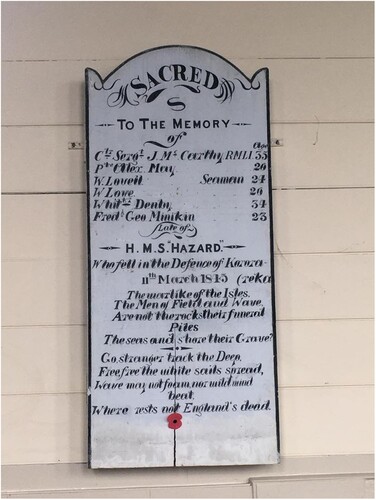 SACRED
S
TO THE MEMORY
of
Age
Clr Sergt J. Mc Carthy R.M.L.I. 35
Pte Alex. May, 20
W. Lovell Seaman 24
W. Lowe 26
Denby 34
Fredk Geo Minikin 23
Late of
H.M.S. "HAZARD"
Who fell in the Defence of Korora-
11th March 1845 (reka
The warlike of the Isles.
The Men of Field and Wave.
Are not the rocks their funeral
Piles
The seas and shore their Grave?
Go, stranger track the Deep,
Free, free the white sails spread,
Wave may not foam, nor wild wind
beat,
Where rests not England's dead.